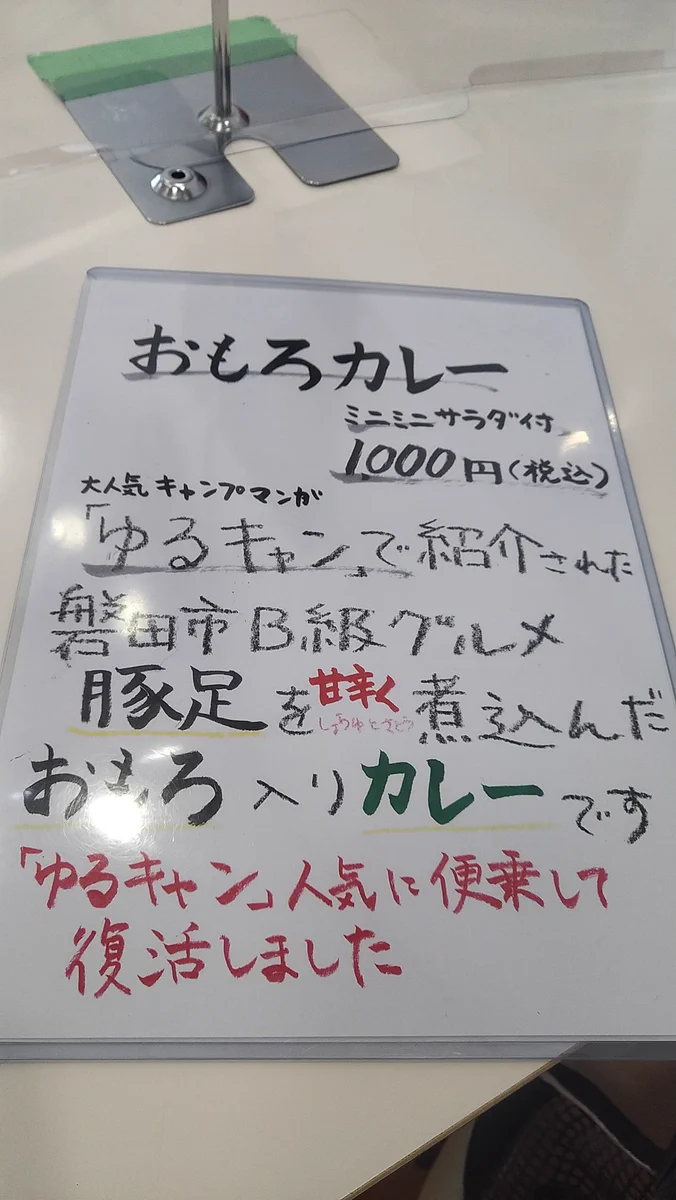 おもろカレー
ミニミニサラダ付
1.000円(税込)
大人気キャンプマンガ
「ゆるキャン」で紹介された
磐田市B級グルメ
豚足を甘辛く煮込んだ
しょうゆとさとう
おもろ入りカレーです
「ゆるキャン」人気に便乗して
復活しました